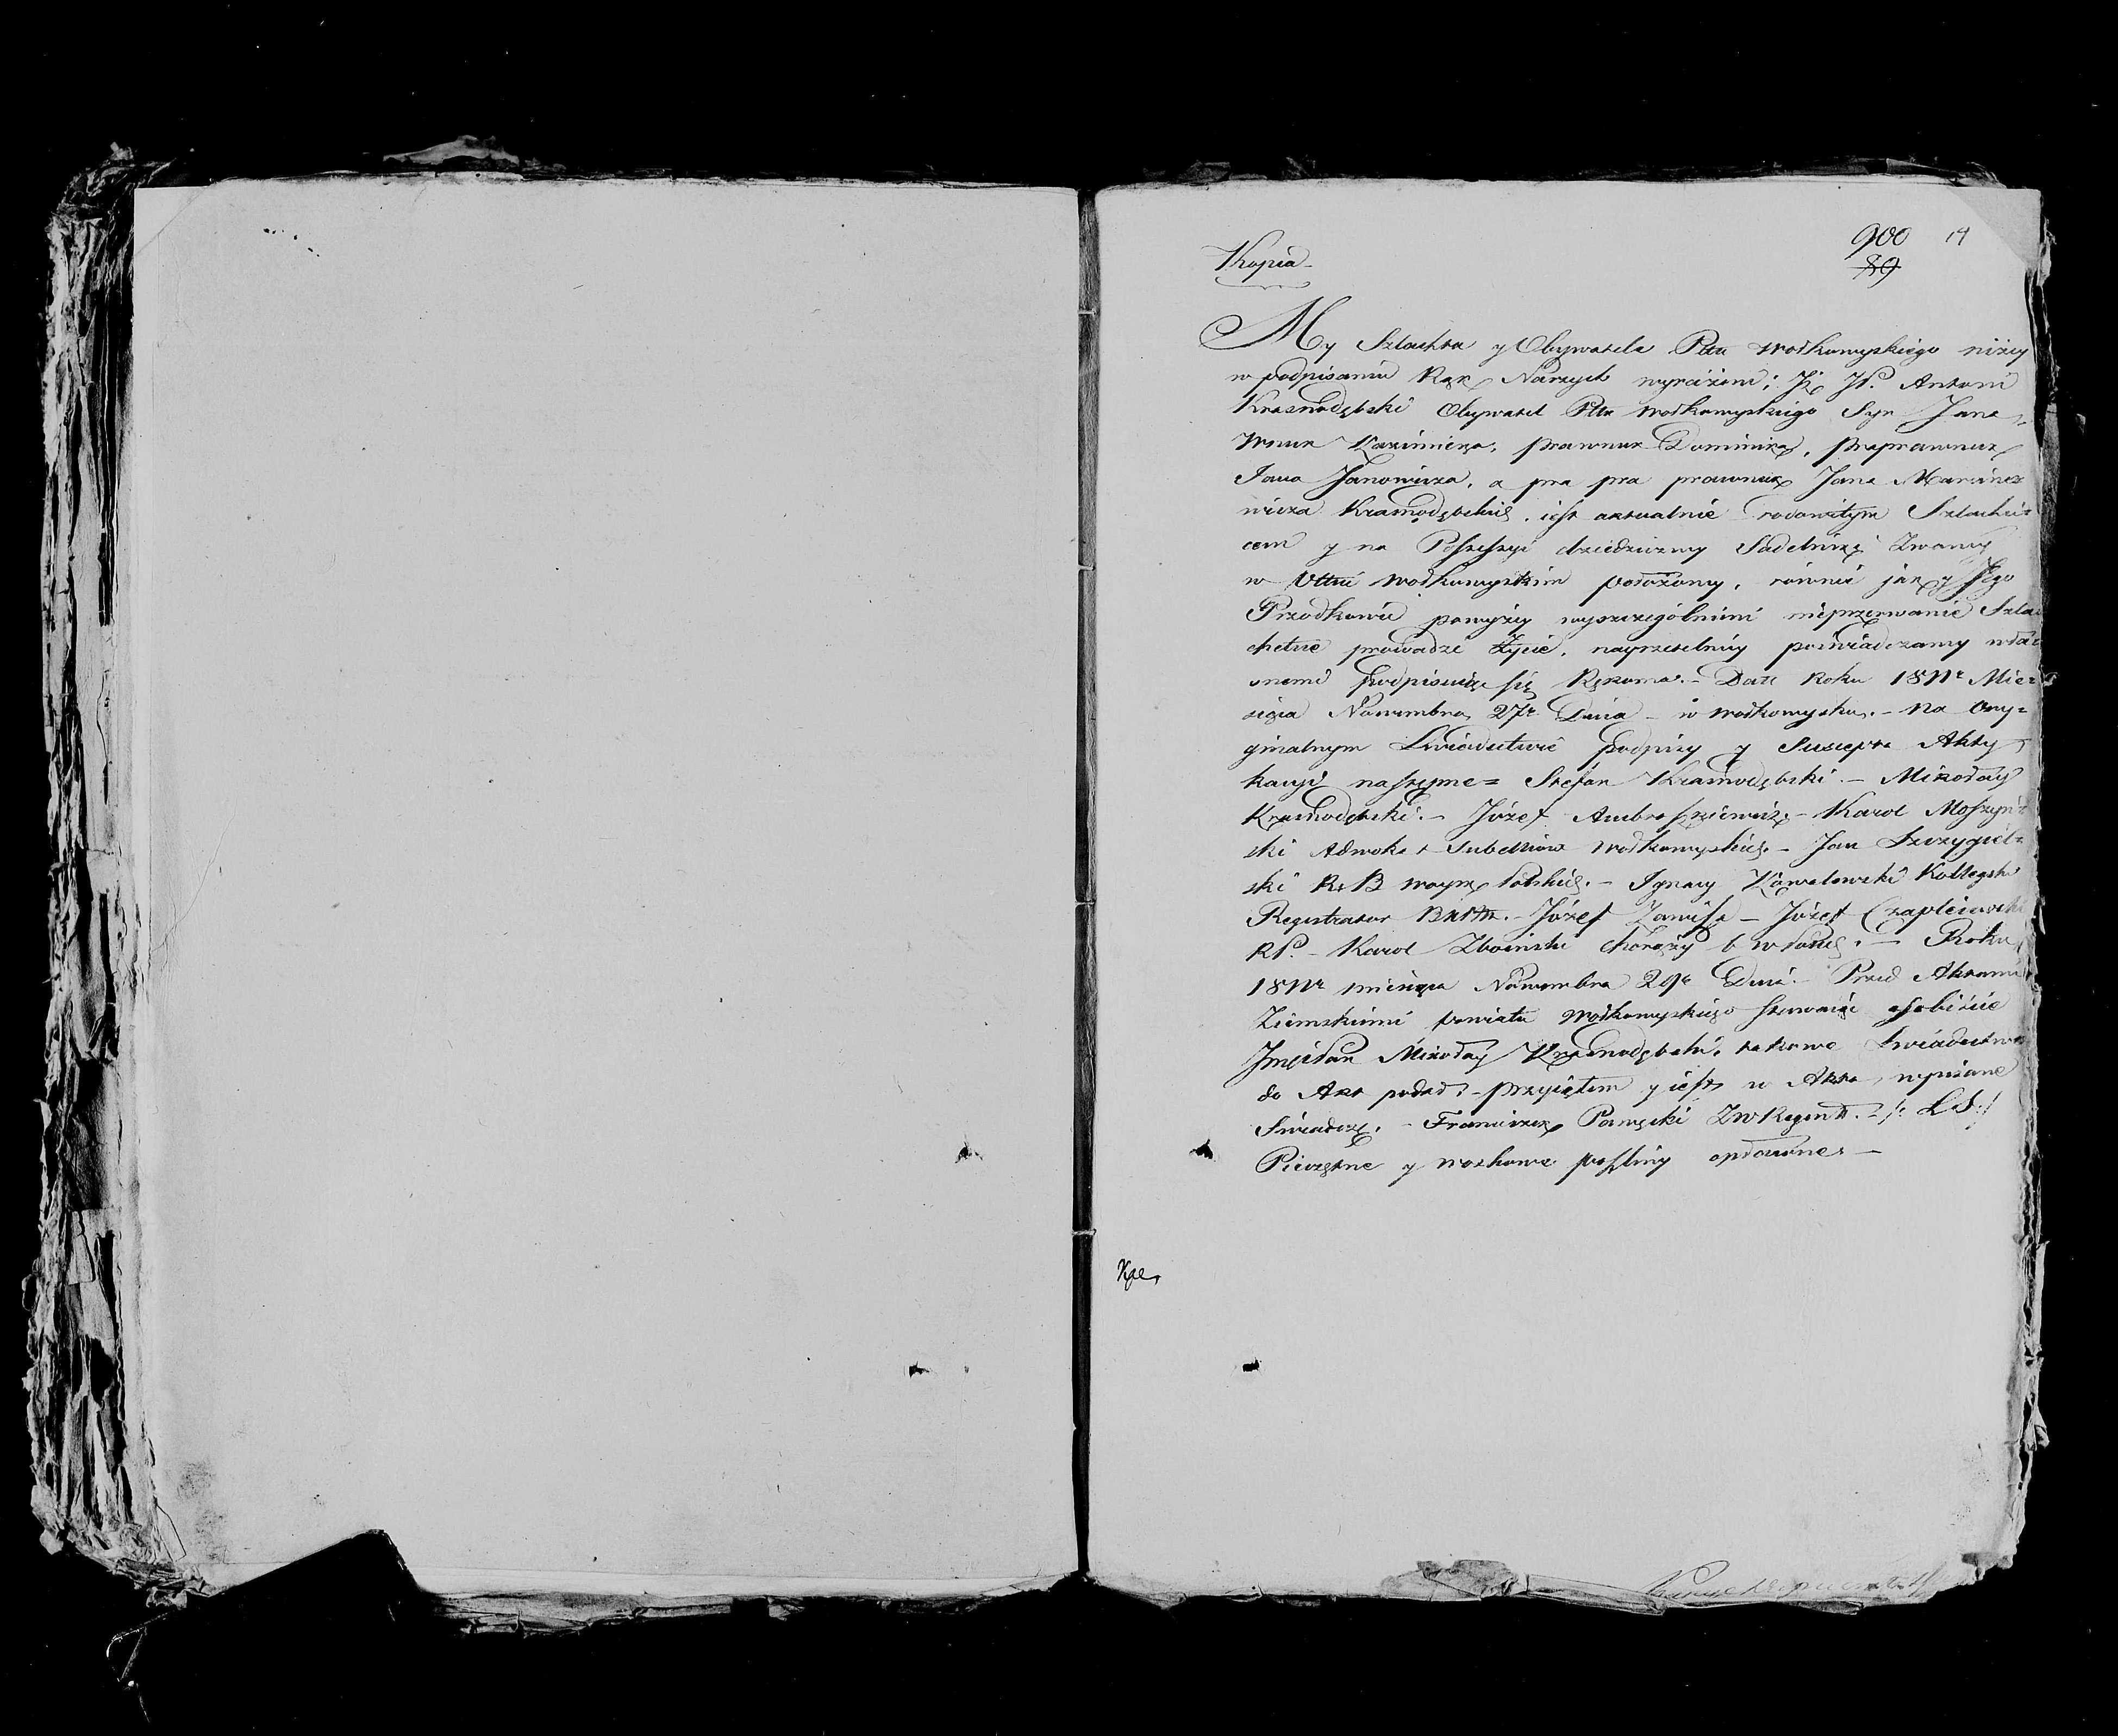 900 14
89
Kopia
My Szlachta y Obywatele Pttu Wołkowyskiego niżey
w podpisaniu Rąk Naszych wyrażeni; Iż JP. Antoni
Krasnodębski Obywatel Pttu Wołkowyskiego Syn Jana
Wnuk Kazimierza, prawnuk Dominika, praprawnuk
Jana Janowicza, a pra pra prawnuk Jana Marcinko=
wicza Krasnodębskieg. iest aktualnie rodowitym Szlachci=
cem y na Possessyi dziedziczney zwaney
w Pttcie Wołkowyskim położoney, równie jak y Jego
Przodkowie powyżey wyszczególnieni nieprzerwanie Szla
chetne prowadzi życie, nayrzetelniey poświadczamy włas=
nemi podpisując się Rękoma. - Datt Roku Mie=
siąca Nowembra 27º Dnia - w Wołkowysku. - Na Ory=
ginalnym Świadectwie podpisy y Suscepta Akty
kacyi następne = Stefan Krasnodębski. - Mikołay
Krasnodębski. - Józef Ambroszkiewicz - Karol Moszyń=
ski Adwokat Subselliów Wołkowyskieg. - Jan Szczygiel=
ski R. B. woysk Polskieg. - Ignacy Kowalewski Kolleg.
Registrator - Józef Zawisza - Józef
RP. - Karol Zboinski Chorąży b. w. Polskieg. - Roku
miesiąca Nowembra 29º Dnia. - Przed Aktami
Ziemskiemi powiatu Wołkowyskiego stawaiąc osobiście
Imćpan Mikołay Krasnodębski, takowe Świadectwo
do Akt podał. - przyiętem y iest w Akta wpisane
Świadczę. - Franciszek ZW Regent. - /: LS :/
Pieczętne y woskowe posliny opłacone. -